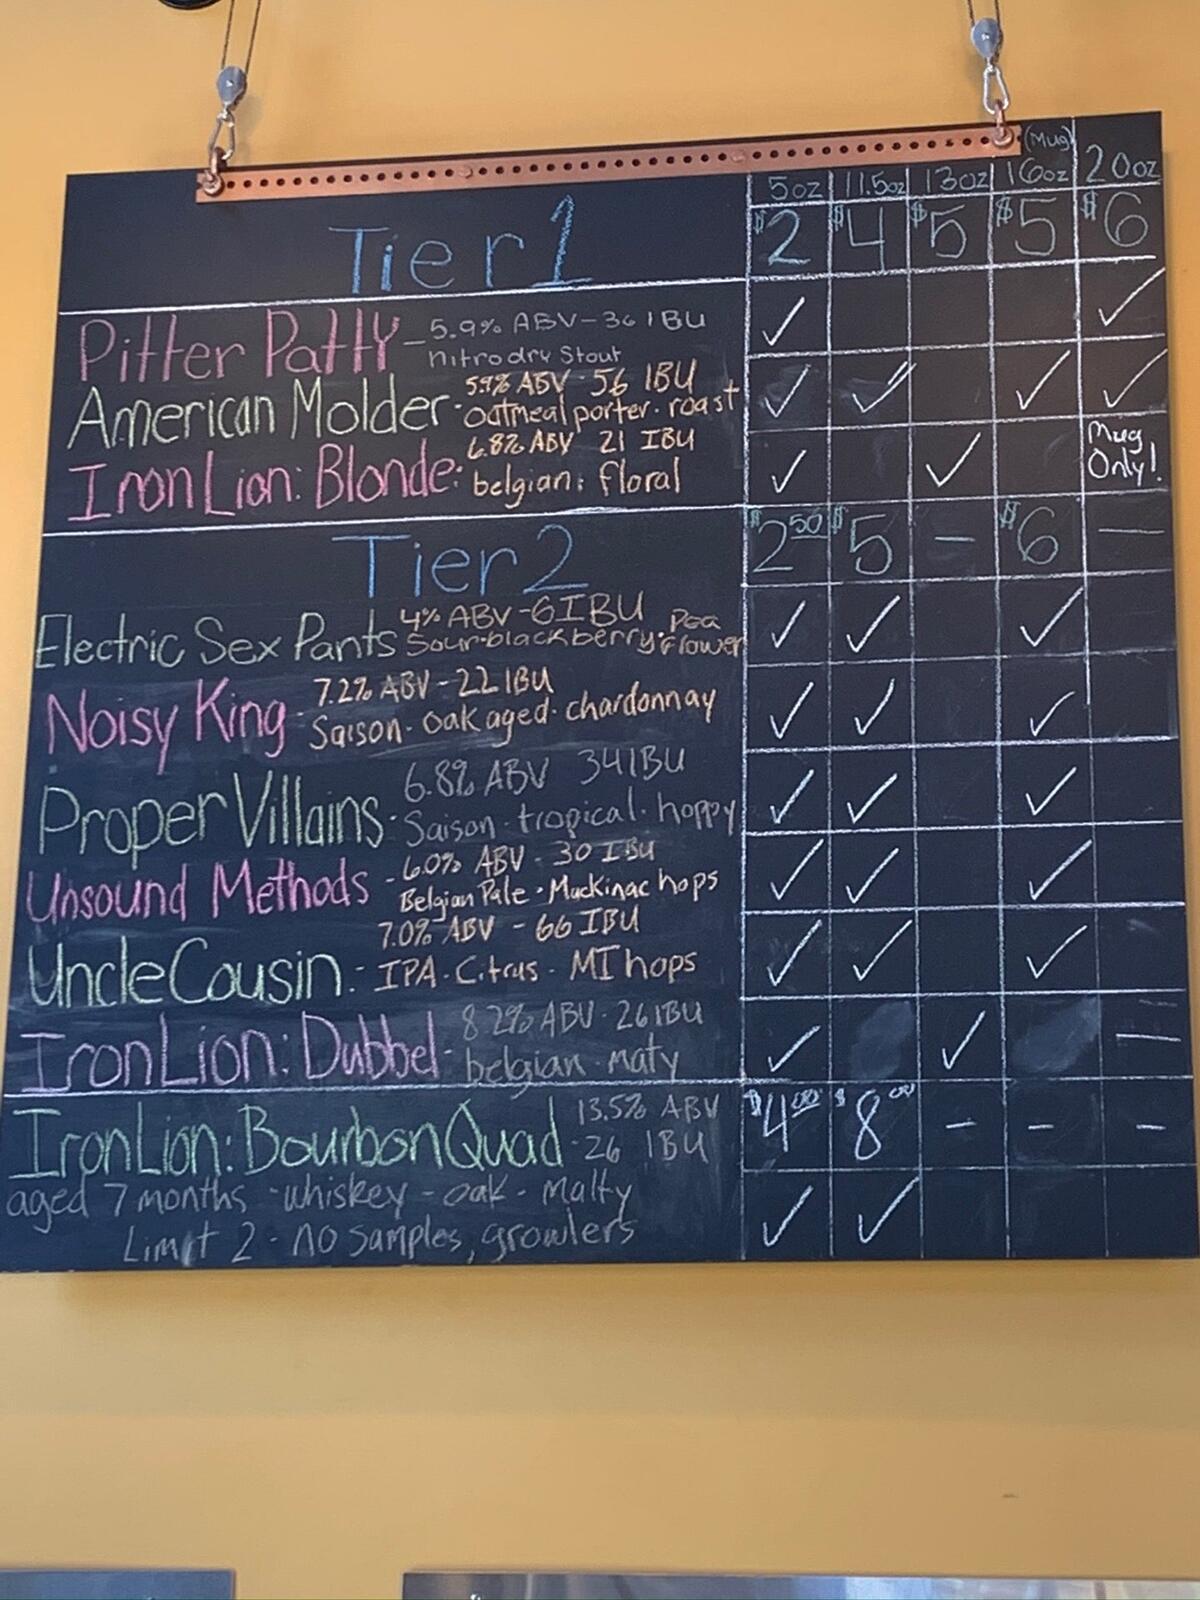 (Mug)
5oz 11.5oz 13oz 16oz 20oz
Tier 1 $2 $4 $5 $5 $6
Pitter Patty - 5.9% ABV - 36 IBU
nitro dry Stout
American Molder - 5.9% ABV - 56 IBU
oatmeal porter - roast
Iron Lion: Blonde: 6.8% ABV 21 IBU
belgian: floral
Mug
Only!
Tier 2 $2.50 $5 - $6 -
Electric Sex Pants 4% ABV - 6 IBU
Sour - blackberry - Pea
Flower
Noisy King - 7.2% ABV - 22 IBU
Saison - Oak aged - chardonnay
Proper Villains - 6.8% ABV 34 IBU
Saison - tropical - hoppy
Unsound Methods - 6.0% ABV - 30 IBU
Belgian Pale - Mackinac hops
Uncle Cousin: - 7.0% ABV - 66 IBU
IPA - Citrus - MI hops
Iron Lion: Dubbel - 8.2% ABV - 26 IBU
belgian - maty
Iron Lion: Bourbon Quad - 13.5% ABV $4.00 $8.00 - - -
26 IBU
aged 7 months - whiskey - oak - Malty
Limit 2 - no samples, growlers